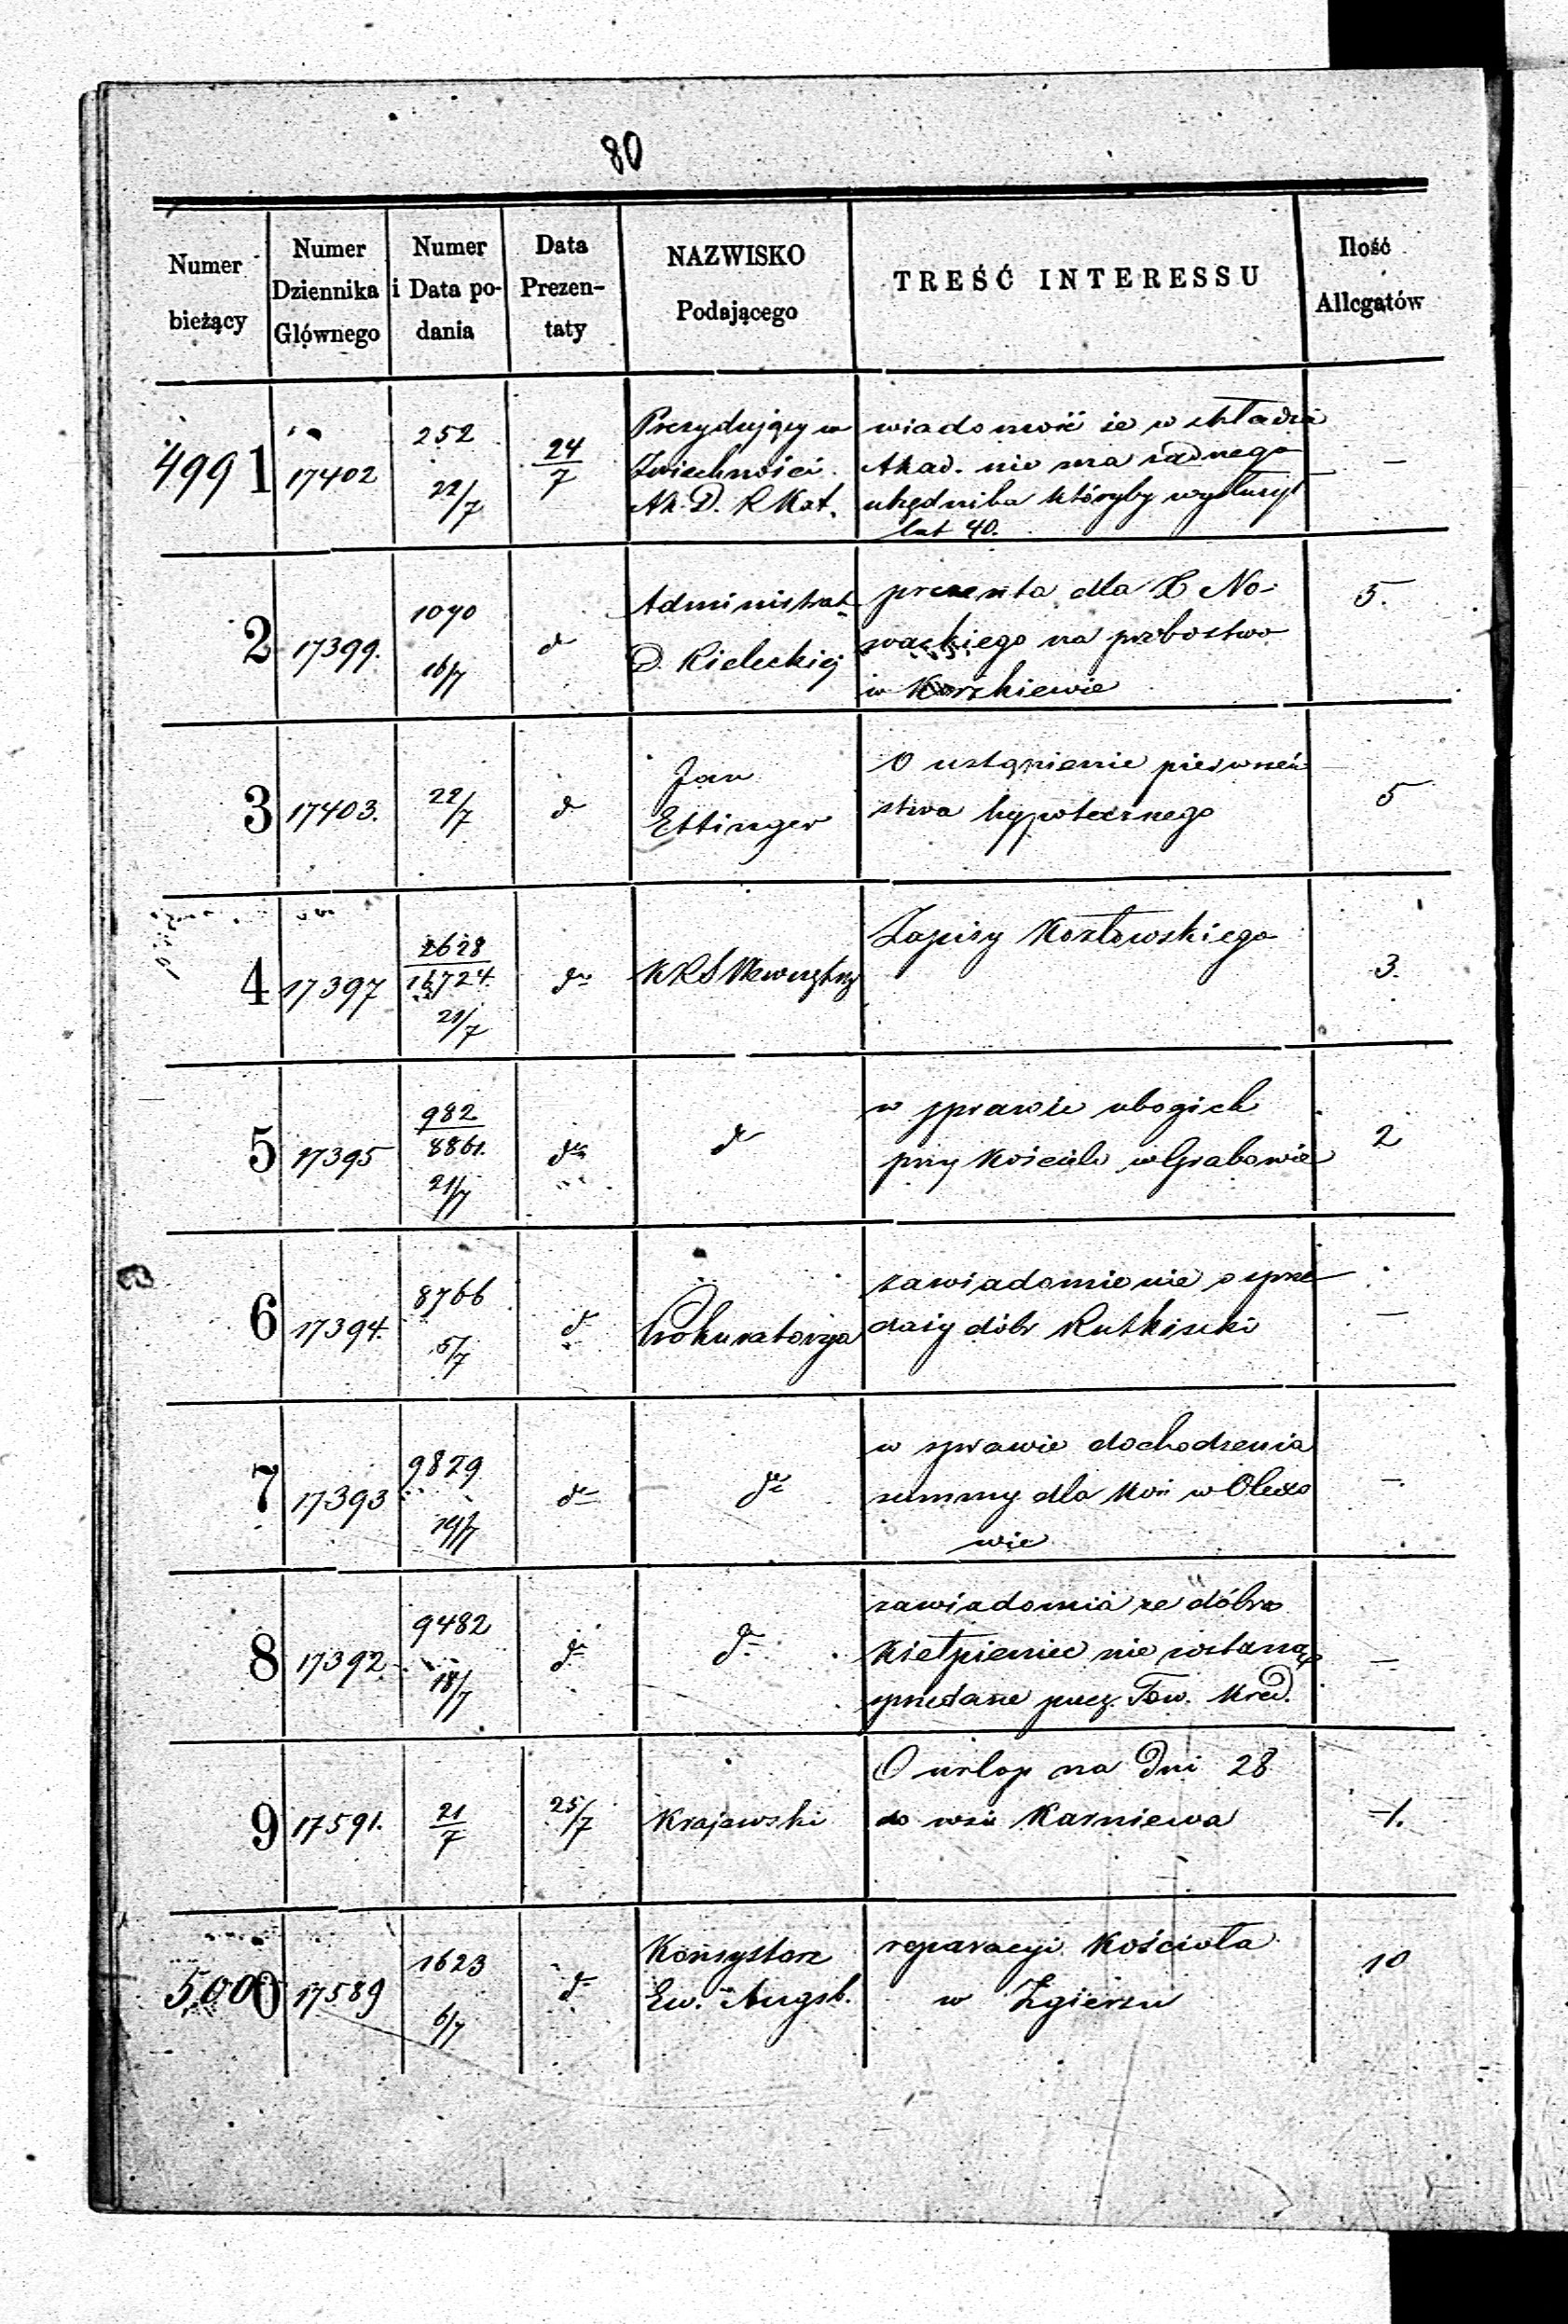 80
Numer bieżący | Numer Dziennika Głównego | Numer i Data podania | Data Prezentaty | NAZWISKO Podającego | TREŚĆ INTERESSU | Ilość Allegatów
4991 | 17402 | 252 22/7 | 24/7 | Prezydujący w
Zwierzchności
Ak. D. R. Kat. | wiadomość że w składzie
Akad. nie ma żadnego
urzędnika któryby wysłużył
lat 40. | —
2 | 17399. | 1070 16/7 | d | Administrat.
D. Kieleckiej | prezenta dla X No-
wackiego na probostwo
w Korzkiewie | 5.
3 | 17403. | 22/7 | d | Jan
Ettinger | O ustąpienie pierwszeń
stwa hypotecznego | 5
4 | 17397 | 2628/16724. 21/7 | do | KRS Wewnętrz | Zapisy Kozłowskiego | 3.
5 | 17395 | 982/8861. 21/7 | do | d | w sprawie ubogich
przy Kościele w Grabowie | 2
6 | 17394. | 8766 5/7 | d | Prokuratorya | zawiadomienie o sprze
daży dóbr Rutki | —
7 | 17393 | 9829 19/7 | do | do | w sprawie dochodzenia
summy dla Koś w
wie | —.
8 | 17392. | 9482 18/7 | do | do | zawiadomia że dobra
Kiełpieniec nie zostaną
sprzedane przez Tow. Kred. | —
9 | 17591. | 21/7 | 25/7 | Krajewski | O urlop na Dni 28
do wsi Karniewa | 1.
5000 | 17589 | 1623 6/7 | do | Konsystorz
Ew. Augsb. | reparacyi Kościoła
w Zgierzu | 10